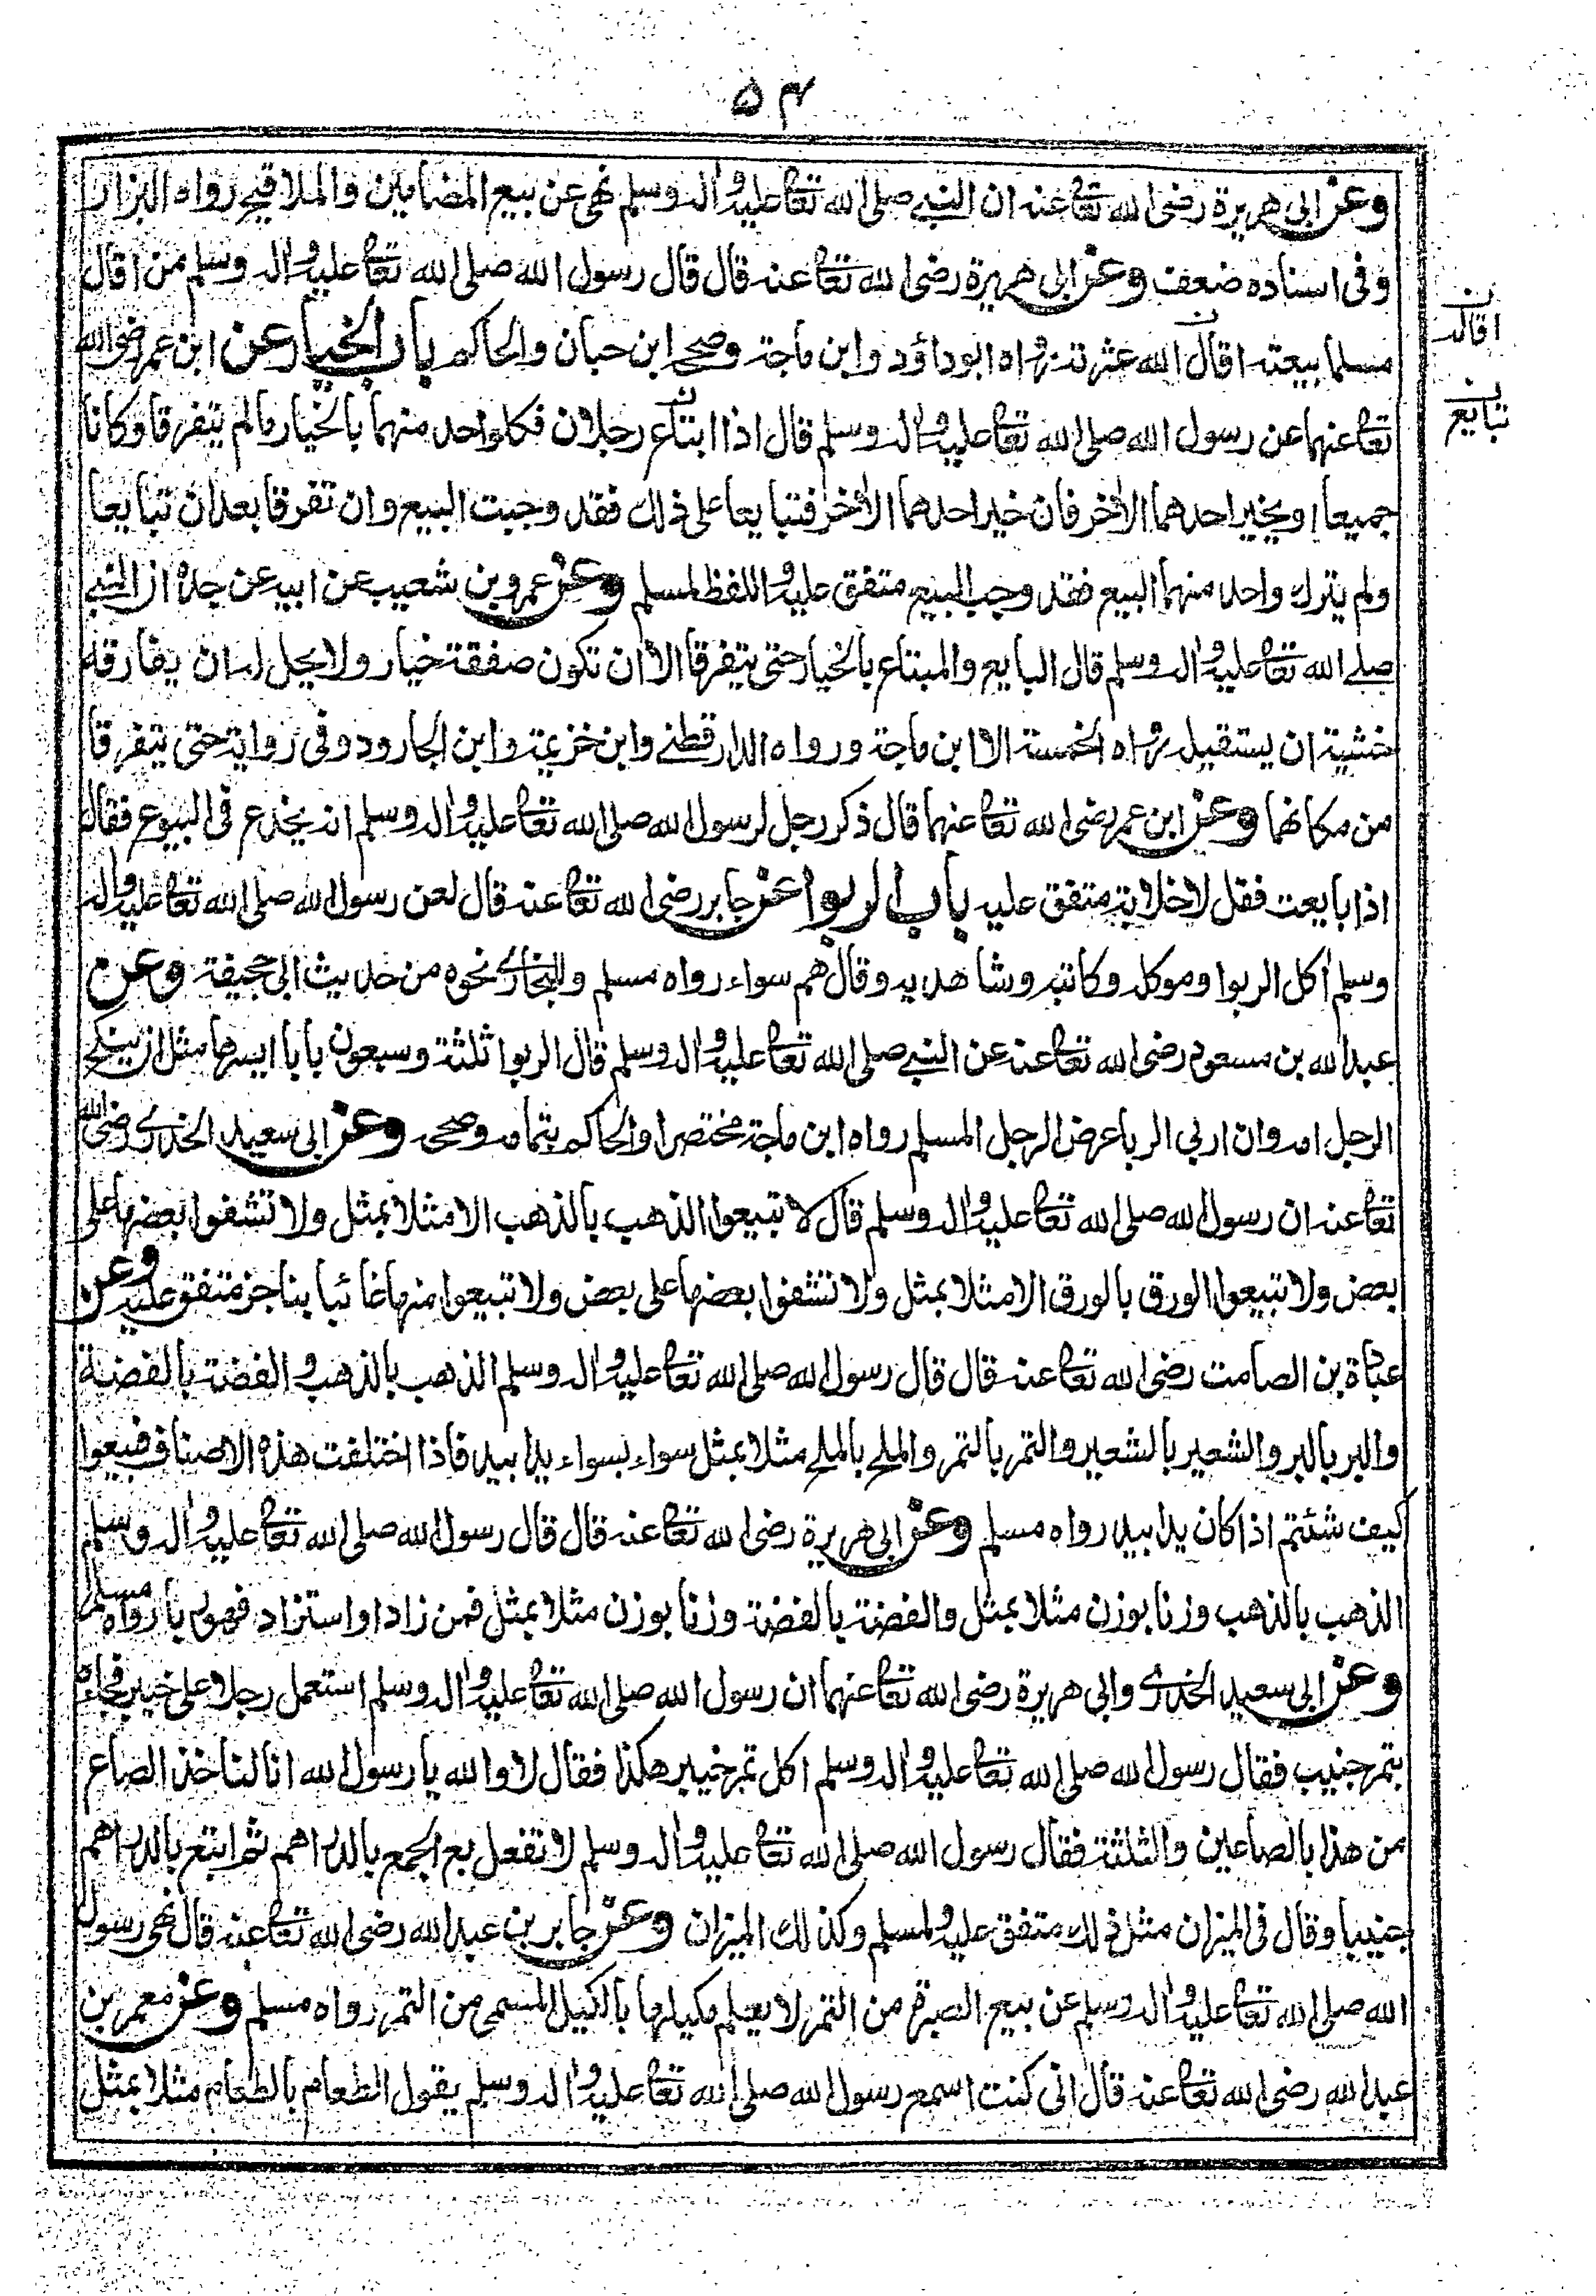 ۵۴
وعن ابی هریرة رضی الله تعالى عنه ان النبے صلى الله تعالى عليه واله وسلم نهى عن بيع المضامين والملاقيح رواه البزار
وفى اسناده ضعف وعن ابی هريرة رضی الله تعالى عنه قال قال رسول الله صلى الله تعالى عليه واله وسلم من اقال
مسلما بيعته اقال الله عثرته رواه ابوداؤد وابن ماجة وصححه ابن حبان والحاكم باب الخيار عن ابن عمر رضى الله
اقاله ن
تعالى عنهما عن رسول الله صلى الله تعالى عليه واله وسلم قال اذا ابتاع رجلان فكلواحد منهما بالخيار مالم يتفرقا وكانا
تبايع ن
جميعا او يخير احدهما الأخر فان خير احدهما الأخر فتبايعا على ذلك فقد وجبت البيع وان تفرقا بعد ان تبايعا
ولم يترك واحد منهما البيع فقد وجب البيع متفق عليه واللفظ لمسلم وعن عمرو بن شعيب عن ابيه عن جده ان النبے
صلے الله تعالى عليه واله وسلم قال البايع والمبتاع بالخيار حتى يتفرقا الأ ان تكون صفقة خيار ولا يحل له ان يفارقه
خشية ان يستقيله رواه الخمسة الا ابن ماجة ورواه الدارقطنے وابن خزيمة وابن الجارود وفى رواية حتى يتفرقا
من مكانهما وعن ابن عمر رضى الله تعالى عنهما قال ذكر رجل لرسول الله صلى الله تعالى عليه واله وسلم انه يخدع فى البيوع فقال
اذا بايعت فقل لا خلابة متفق عليه باب الربوا عن جابر رضى الله تعالى عنه قال لعن رسول الله صلى الله تعالى عليه واله
وسلم أكل الربوا وموكله وكاتبه وشاهديه وقال هم سواء رواه مسلم وللبخارے نحوه من حديث ابى جحيفة وعن
عبد الله بن مسعود رضى الله تعالى عنه عن النبے صلى الله تعالى عليه واله وسلم قال الربوا ثلثة وسبعون بابا ايسرها مثل ان ينكح
الرجل امه وان اربى الربا عرض الرجل المسلم رواه ابن ماجة مختصرا والحاكم بتمامه وصححه وعن ابى سعيد الخدرے رضى الله
تعالى عنه ان رسول الله صلى الله تعالى عليه واله وسلم قال لا تبيعوا الذهب بالذهب الا مثلا بمثل ولا تشفوا بعضها على
بعض ولا تبيعوا الورق بالورق الا مثلا بمثل ولا تشفوا بعضها على بعض ولا تبيعوا منها غائبا بناجز متفق عليه وعن
عبادة بن الصامت رضى الله تعالى عنه قال قال رسول الله صلى الله تعالى عليه واله وسلم الذهب بالذهب والفضة بالفضة
والبر بالبر والشعير بالشعير والتمر بالتمر والملح بالملح مثلا بمثل سواء بسواء يدا بيد فاذا اختلفت هذه الاصناف فبيعوا
كيف شئتم اذا كان يدا بيد رواه مسلم وعن ابى هريرة رضى الله تعالى عنه قال قال رسول الله صلى الله تعالى عليه واله وسلم
الذهب بالذهب وزنا بوزن مثلا بمثل والفضة بالفضة وزنا بوزن مثلا بمثل فمن زاد او استزاد فهو ربا رواه مسلم
وعن ابى سعيد الخدرے وابى هريرة رضى الله تعالى عنهما ان رسول الله صلى الله تعالى عليه واله وسلم استعمل رجلا على خيبر فجاءه
بتمر جنيب فقال رسول الله صلى الله تعالى عليه واله وسلم اكل تمر خيبر هكذا فقال لا والله يا رسول الله انا لناخذ الصاع
من هذا بالصاعين والثلثة فقال رسول الله صلى الله تعالى عليه واله وسلم لا تفعل بع الجمع بالدراهم ثم ابتع بالدراهم
جنيبا وقال فى الميزان مثل ذلك متفق عليه ولمسلم وكذلك الميزان وعن جابر بن عبد الله رضى الله تعالى عنه قال نهى رسول
الله صلى الله تعالى عليه واله وسلم عن بيع الصبرة من التمر لا يعلم مكيلها بالكيل المسمى من التمر رواه مسلم وعن معمر بن
عبد الله رضى الله تعالى عنه قال انى كنت اسمع رسول الله صلى الله تعالى عليه واله وسلم يقول الطعام بالطعام مثلا بمثل